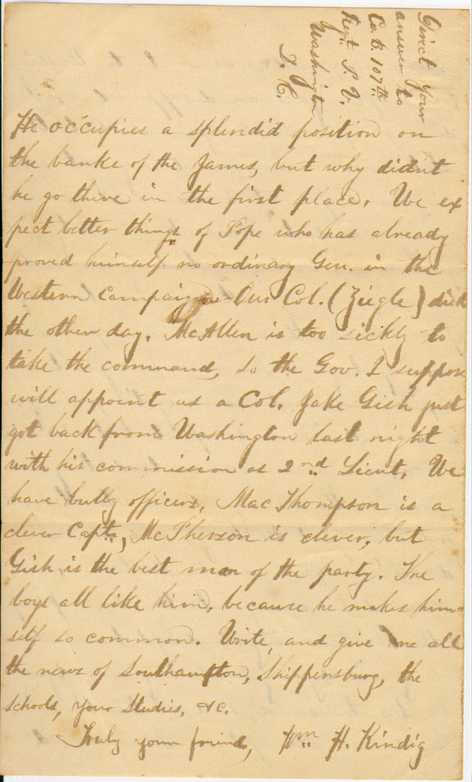 Direct your
answer to
Co. B. 107th
Regt. P. V.
Washington
D. C.
He occupies a splendid position on
the banks of the James, but why didnt
he go there in the first place. We ex
pect better things of Pope who has already
proved himself no ordinary Gen. in the
Western campaign. Our Col. (Ziegle) died
the other day. McAllen is too sickly to
take the command, so the Gov. I suppose
will appoint us a Col. Jake Gish just
got back from Washington last night
with his commission as 2nd Lieut. We
have bully officers, Mac Thompson is a
clever Capt, McPherson is clever, but
Gish is the best man of the party. The
boys all like him, because he makes him-
self so common. Write, and give me all
the news of Southampton, Shippensburg, the
schools, your studies, &c.
Truly your friend, Wm H. Kindig